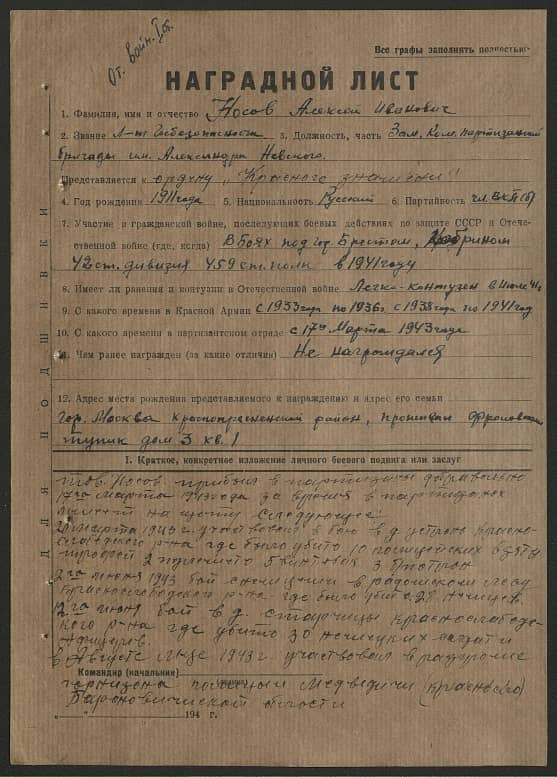 От. Войн. I ст.
Все графы заполнять полностью
НАГРАДНОЙ ЛИСТ
1. Фамилия, имя и отчество Носов Алексей Иванович
2. Звание Л-нт Госбезопасности 3. Должность, часть Зам. Ком. партизанской
бригады им. Александра Невского.
Представляется к ордену "Красного знамени"
4. Год рождения 1911 года 5. Национальность Русский 6. Партийность чл. ВКП(б)
7. Участие в гражданской войне, последующих боевых действиях по защите СССР и Отече-
ственной войне (где, когда) В боях под гор. Брестом, Кобрином
42 ст. дивизия 459 ст. полк в 1941 году
8. Имел ли ранения и контузии в Отечественной войне Легко-контужен в Июле 41 г.
9. С какого времени в Красной Армии с 1933 года по 1936 г. с 1938 года по 1941 год
10. С какого времени в партизантском отряде с 17го Марта 1943 года
11. Чем ранее награжден (за какие отличия) Не награждался
12. Адрес места рождения представляемого к награждению и адрес его семьи
гор. Москва Краснопресненский район,
тупик дом 3 кв. 1
ДЛЯ ПОДШИВКИ
I. Краткое, конкретное изложение личного боевого подвига или заслуг
тов. Носов прибыл в партизаны добровольно
17го марта 1943 года за время в партизанах
имеет на щету следующее:
марта 1943 г. участвовал в бою в д. Устронь Красно-
слободского р-на где было убито 10 полицейских взяты
трофеи 2 5 винтовок
2го июня 1943 бой с немцами в лесу
Краснослободского р-на где было убито 28 немцев.
12го июня бой в д. Старицы Краснослободс-
кого р-на где убито 30 немецких солдат и
офицеров.
В Августе м-це 1943 г. участвовал в разгроме
Командир (начальник)
гарнизона полиции Медведичи
Барановичской области
" " 194 г.